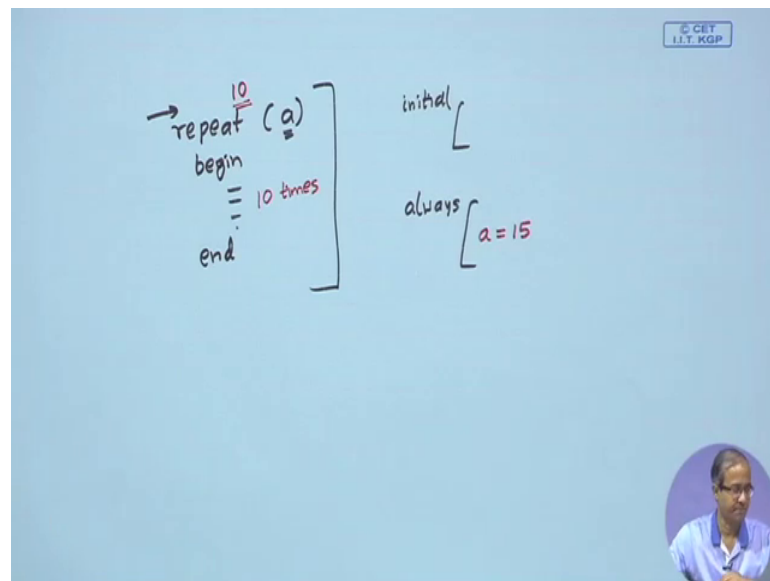 © CET
I.I.T. KGP
10
repeat (a)
begin
10 times
end
initial
always
a = 15